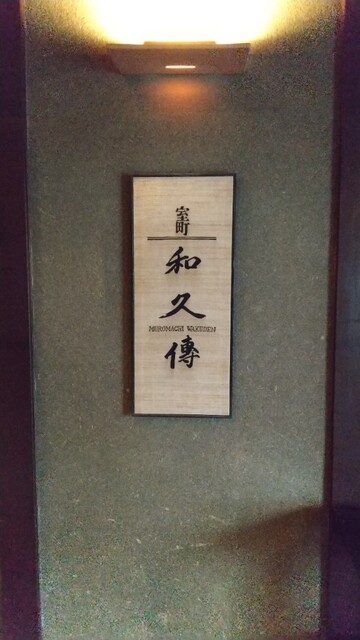 室町
和
久
MUROMACHI WAKUDEN
傳